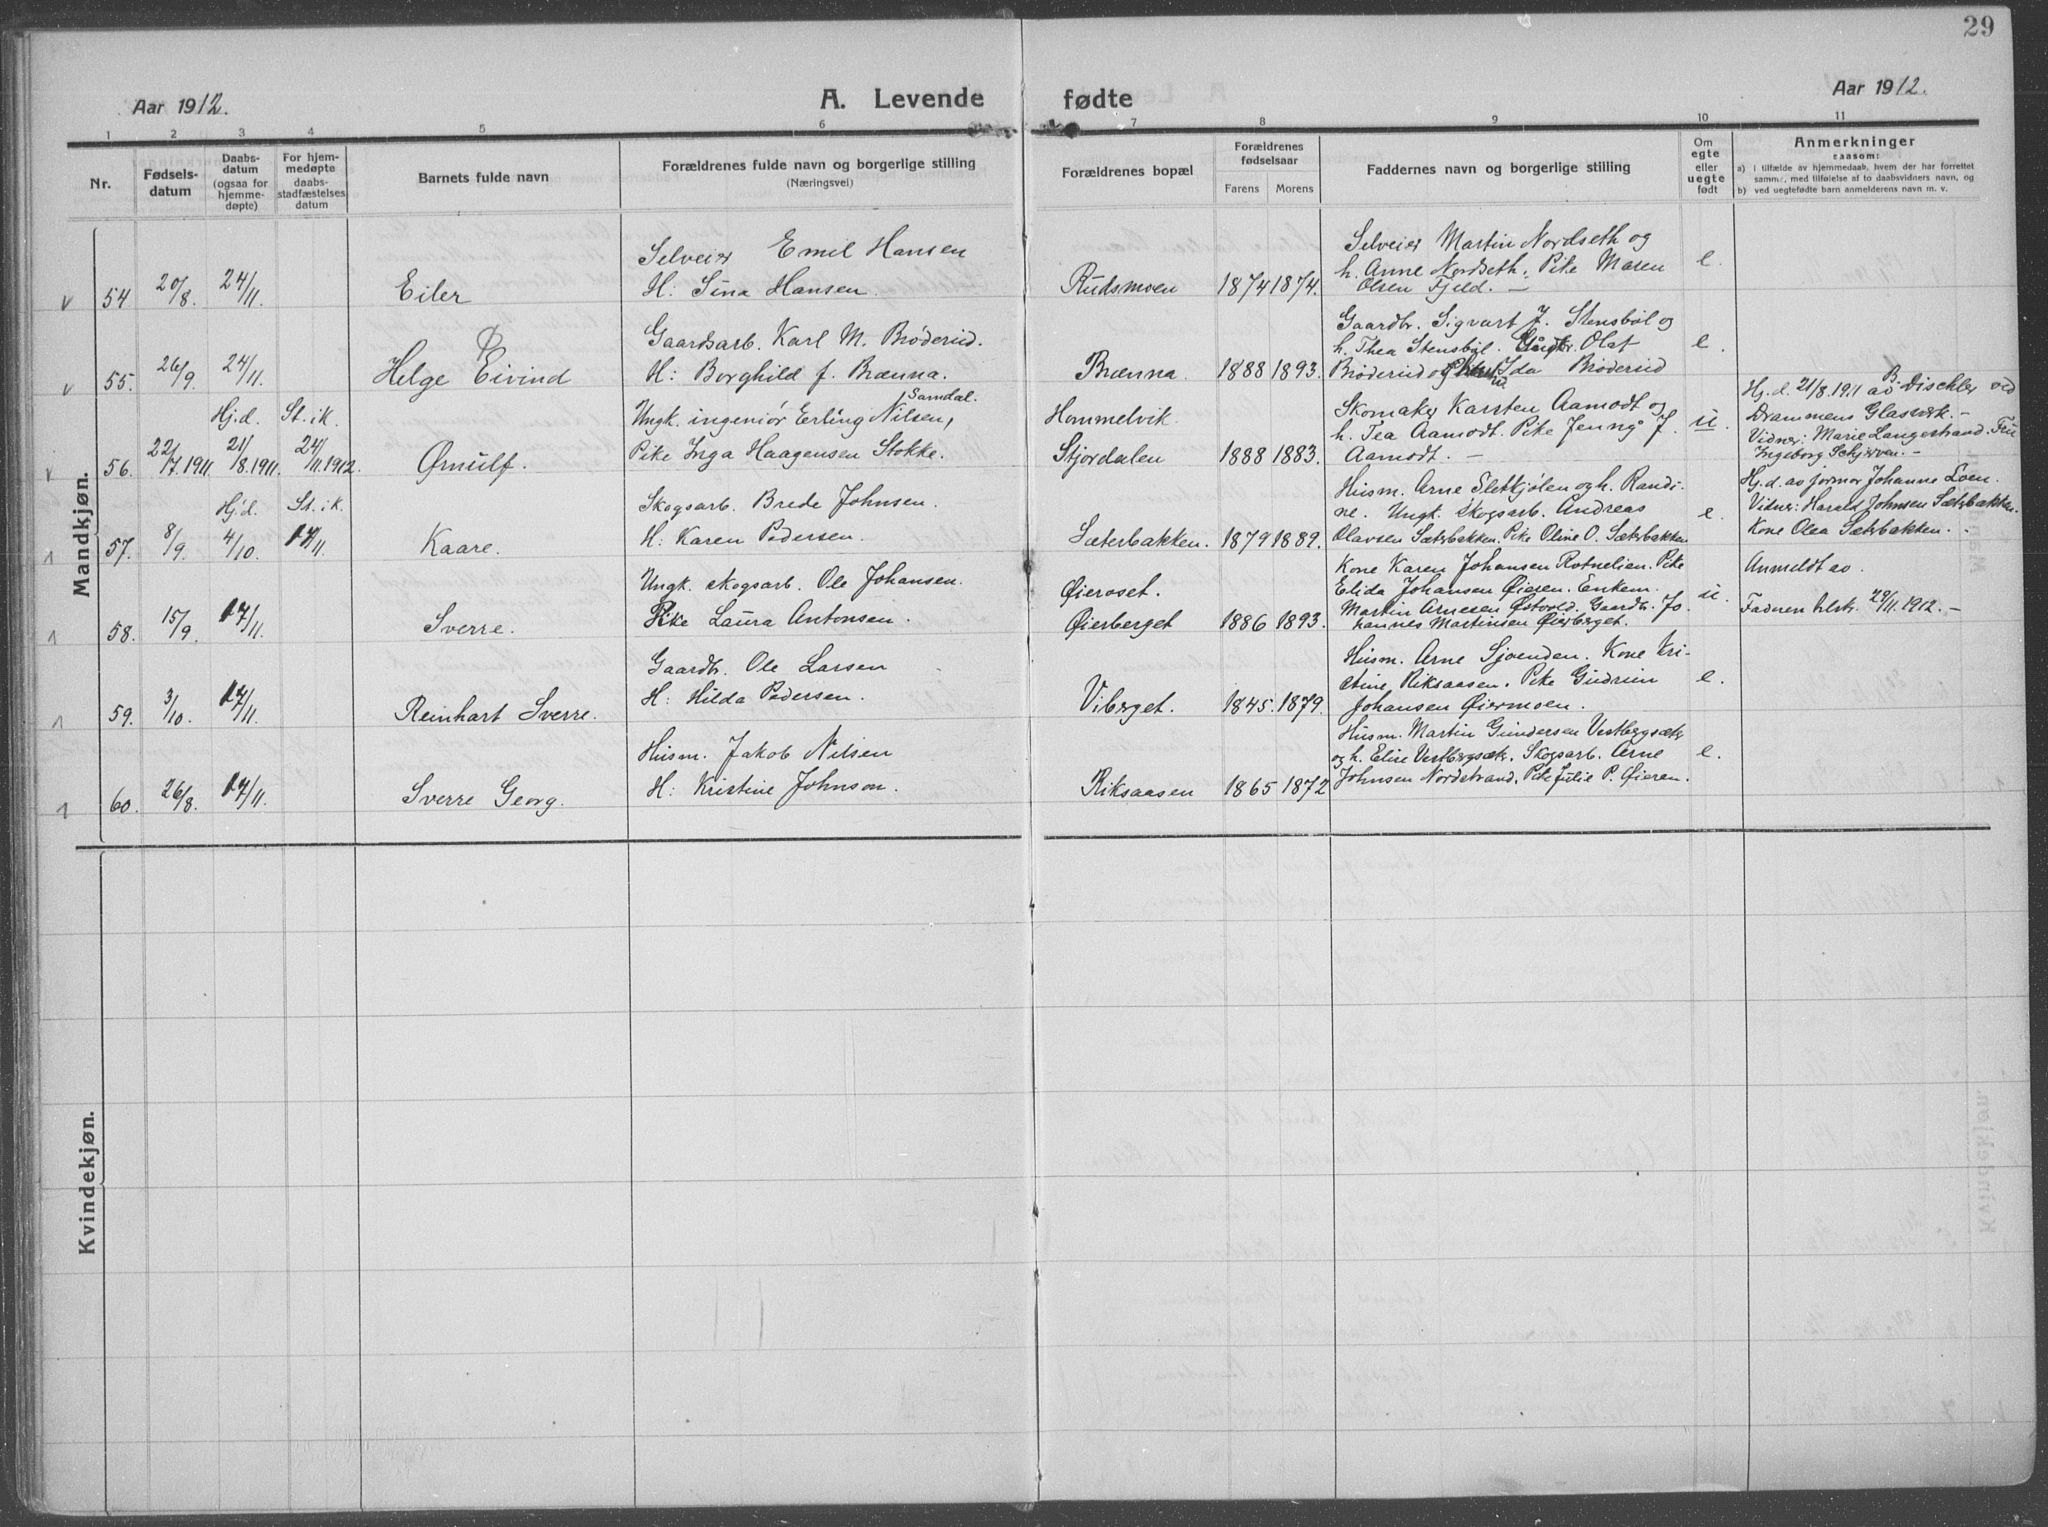 29
Aar 1912.
A. Levende fødte
Aar 1912.
1 2 3 4 5 6 7 8 9 10 11
Nr.
Fødsels-
datum
Daabs-
datum
(ogsaa for
hjemme-
døpte)
For hjem-
medøpte
daabs-
stadfæstelses
datum
Barnets fulde navn
Forældrenes fulde navn og borgerlige stilling
(Næringsvei)
Forældrenes bopæl
Forældrenes
fødselsaar
Farens Morens
Faddernes navn og borgerlige stilling
Om
egte
eller
uegte
født
Anmerkninger
saasom:
a) i tilfælde av hjemmedaab, hvem der har forrettet
samme, med tilføielse af to daabsvidners navn, og
b) ved uegtefødte barn anmelderens navn m. v.
Mandkjøn.
54. 20/8. 24/11. Eiler
Selveier Emil Hansen
H: Sina Hansen.
Rudsmoen 1874 1874.
Selveier Martin Nordseth og
h. Anne Nordseth. Pike Maren
Olsen Fjeld. —
e.
55. 26/9. 24/11. Helge Eivind
Gaardsarb. Karl M. Brøderud.
H: Borghild f. Brænna.
Brænna. 1888 1893.
Gaardbr. Sigvart J. Stensbøl og
h. Thea Stensbøl. Olaf
Brøderud og Ida Brøderud
e.
Hj.d. St. i k.
56. 22/7. 1911 21/8. 1911. 24/11. 1912. Ørnulf.
Samdal.
Ungk. ingeniør Erling Nilsen,
Pike Inga Haagensen Stokke.
Hommelvik.
Stjørdalen 1888 1883.
Skomaker Karsten Aamodt og
h. Tea Aamodt. Pike Jenny J.
Aamodt. —
u.
Hj. d. 21/8. 1911 av B. Dischler ved
Drammens Glasverk. -
Vidner: Marie Langestrand. Fru
Ingeborg Schjerven. -
Hj.d. St. i k.
57. 8/9. 4/10. 17/11. Kaare.
Skogsarb. Brede Johnsen.
H: Karen Pedersen.
Sæterbakken. 1879 1889.
Husm. Arne Sletkjølen og h. Randi-
ne. Ungk. skogsarb. Andreas
Olavsen Sæterbakken. Pike Oline O. Sæterbakken
e.
Hj. d. av jormor Johanne Loen.
Vidner: Harald Johnsen Sæterbakken.
Kone Olea Sæterbakken. -
58. 15/9. 17/11. Sverre.
Ungk. skogsarb. Ole Johansen.
Pike Laura Antonsen.
Øieroset.
Øierberget 1886 1893.
Kone Karen Johansen Rotnelien. Pike
Elida Johansen Øieren. Enkem.
Martin Arnesen Østvold. Gaardbr. Jo
hannes Martinsen Øierberget.
u.
Anmeldt av.
Faderen tilstr. 29/11. 1912. -
59. 3/10. 17/11. Reinhart Sverre.
Gaardbr. Ole Larsen
H: Hilda Pedersen.
Viberget. 1845. 1879.
Husm. Arne Sjoenden. Kone Kri-
stine Riksaasen. Pike Gudrun
Johansen Øiermoen.
e.
60. 26/8. 17/11. Sverre Georg.
Husm. Jakob Nilsen
H: Kristine Johnson.
Riksaasen 1865 1872
Husm. Martin Gundersen Vestbergsæter
og h. Elise Vestbergsæt. Skogsarb. Arne
Johnsen Nordstrand. Pike Julie P. Øieren.
e.
Kvindekjøn.